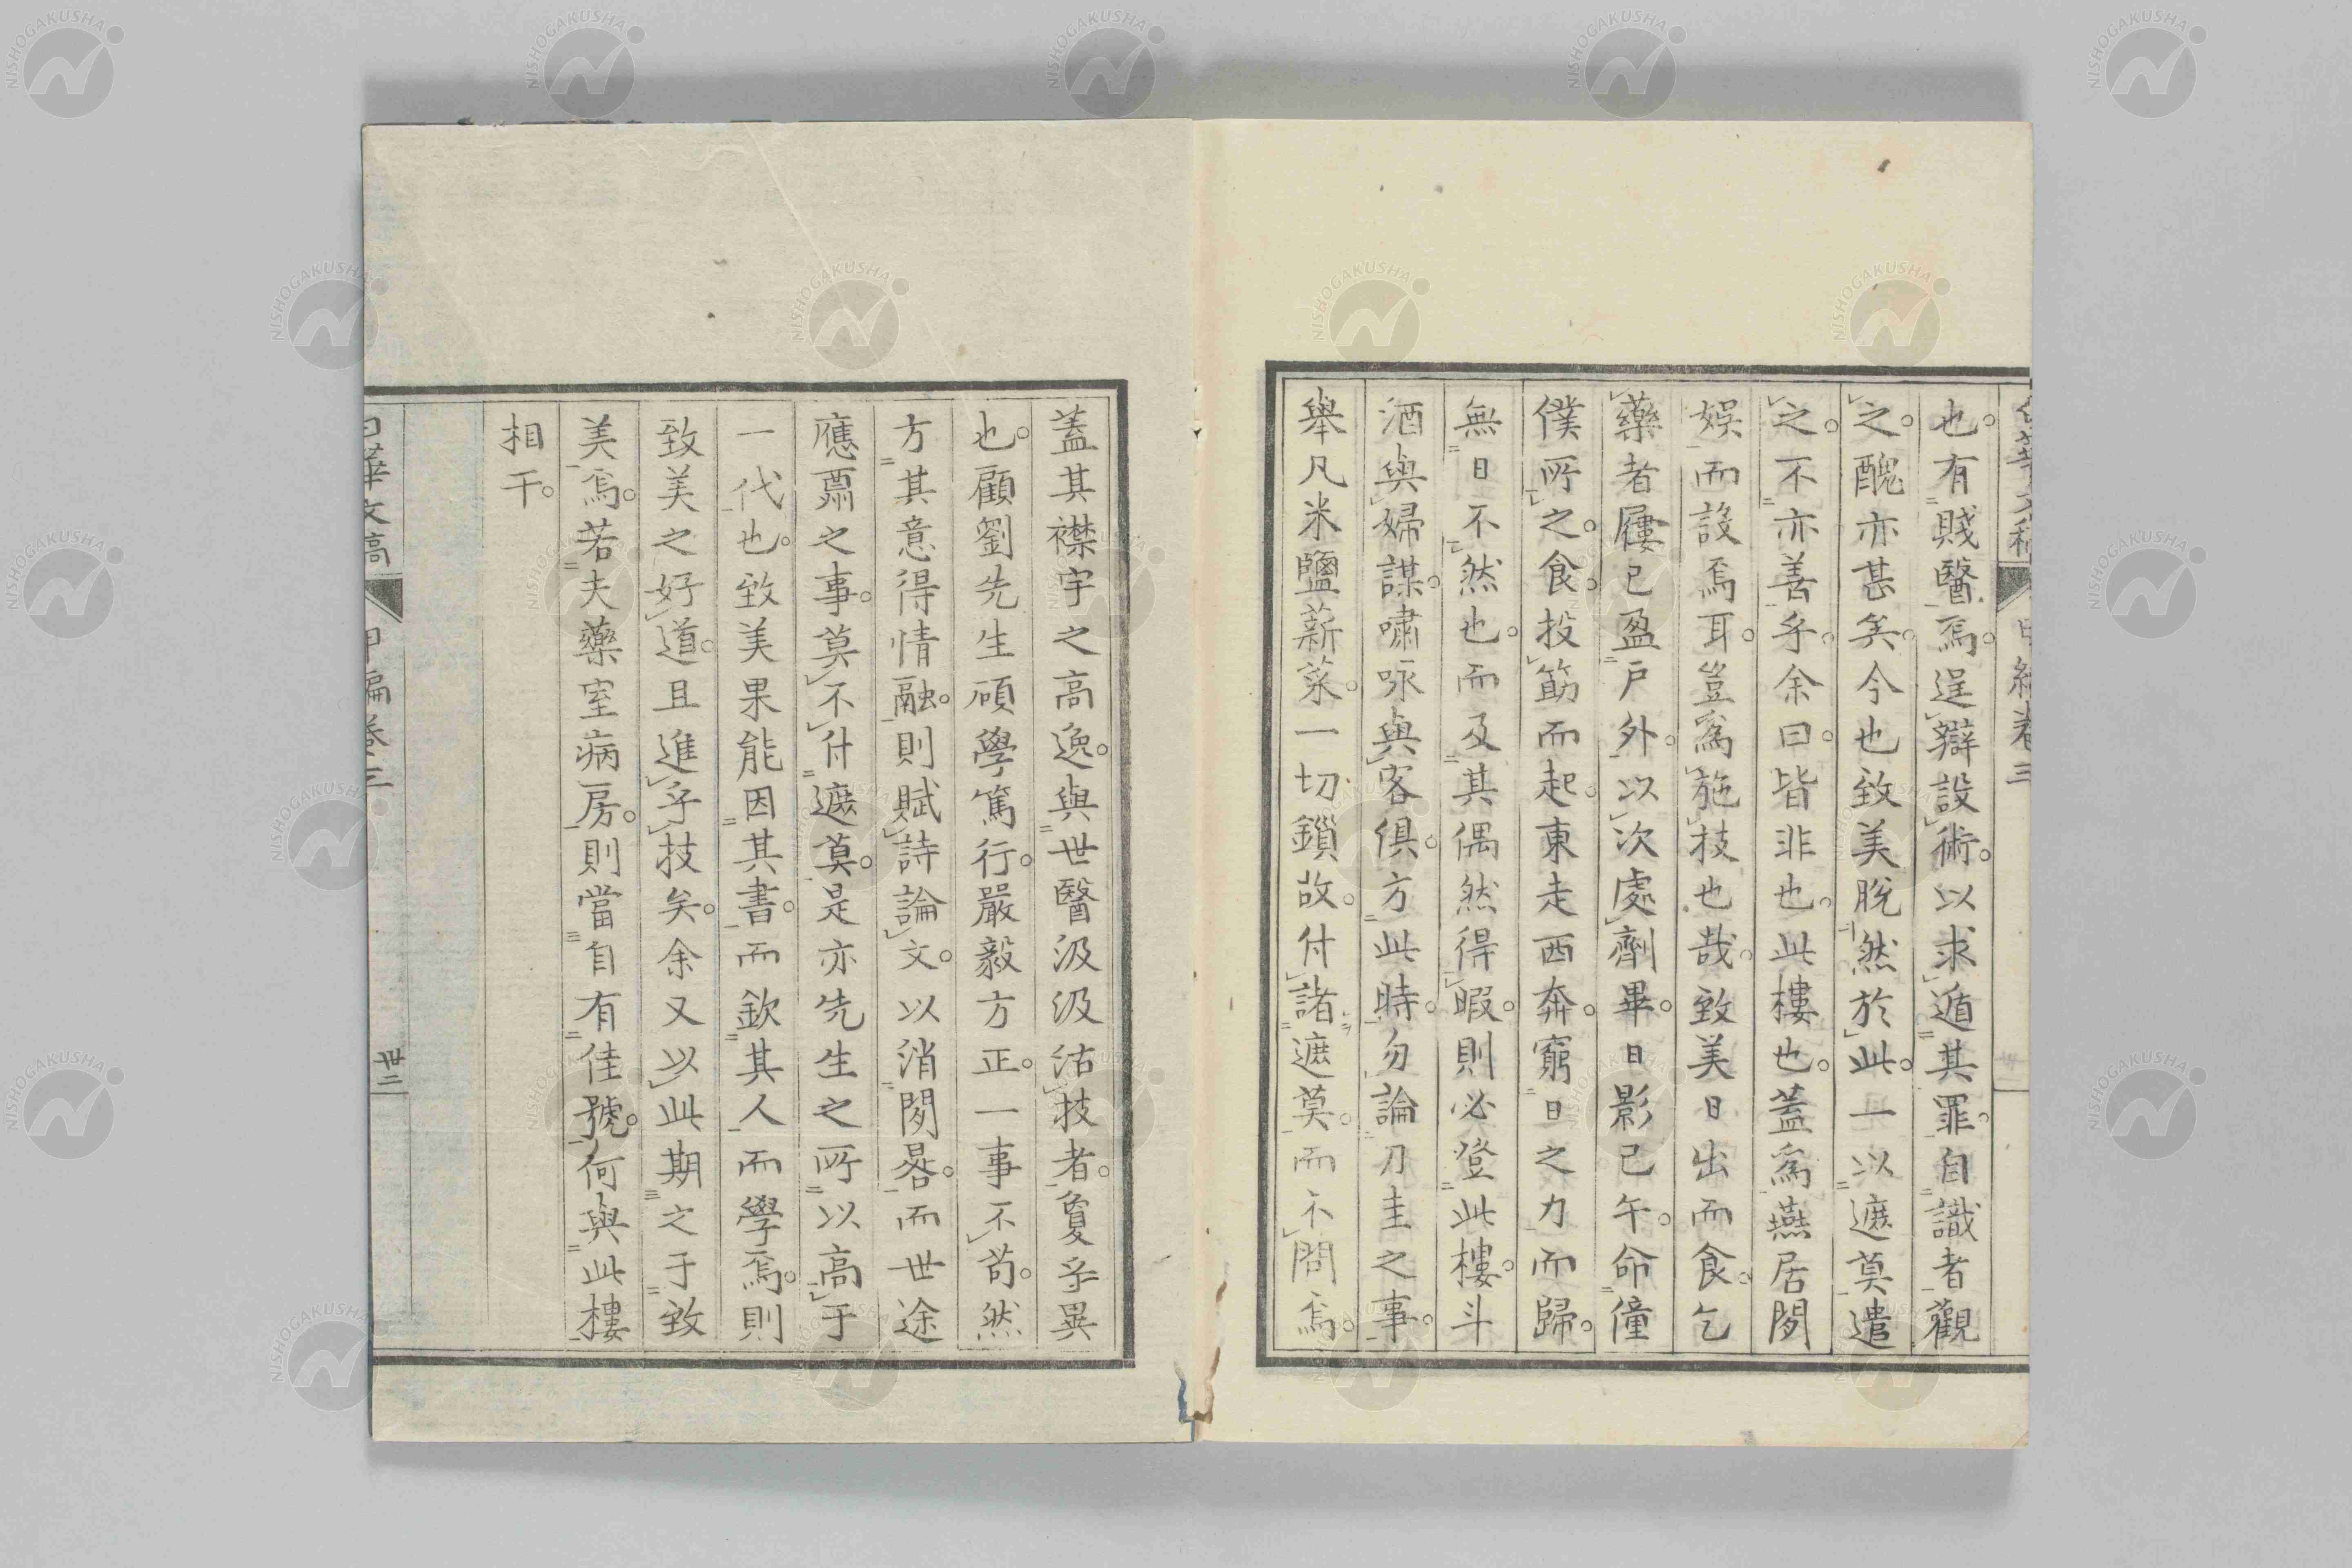 也。有賤醫焉。逞辯設術。以求遁其罪。自識者觀
之。醜亦甚矣。今也致美脫然於此。一以遮莫遣
之。不亦善乎。余曰。皆非也。此樓也。蓋爲燕居閒
娛而設焉耳。豈爲施技也哉。致美日出而食。乞
藥者屨已盈戶外。以次處劑畢。日影已午。命僮
僕所之。食。投筯而起。東走西奔。窮日之力而歸。
無日不然也。而及其偶然得暇。則必登此樓。斗
酒與婦謀。嘯咏與客俱。方此時。勿論刀圭之事。
舉凡米鹽薪菜。一切鎖故。付諸遮莫。而不問焉。
蓋其襟宇之高逸。與世醫汲汲沽技者。夐乎異
也。顧劉先生碩學篤行。嚴毅方正。一事不苟。然
方其意得情融。則賦詩論文。以消閒晷。而世途
應酬之事。莫不付遮莫。是亦先生之所以高于
一代也。致美果能因其書。而欽其人而學焉。則
致美之好道。且進乎技矣。余又以此期之于致
美焉。若夫藥室病房。則當自有佳號。何與此樓
相干。
白華文稿 甲編卷三 卅二
NISHOGAKUSHA